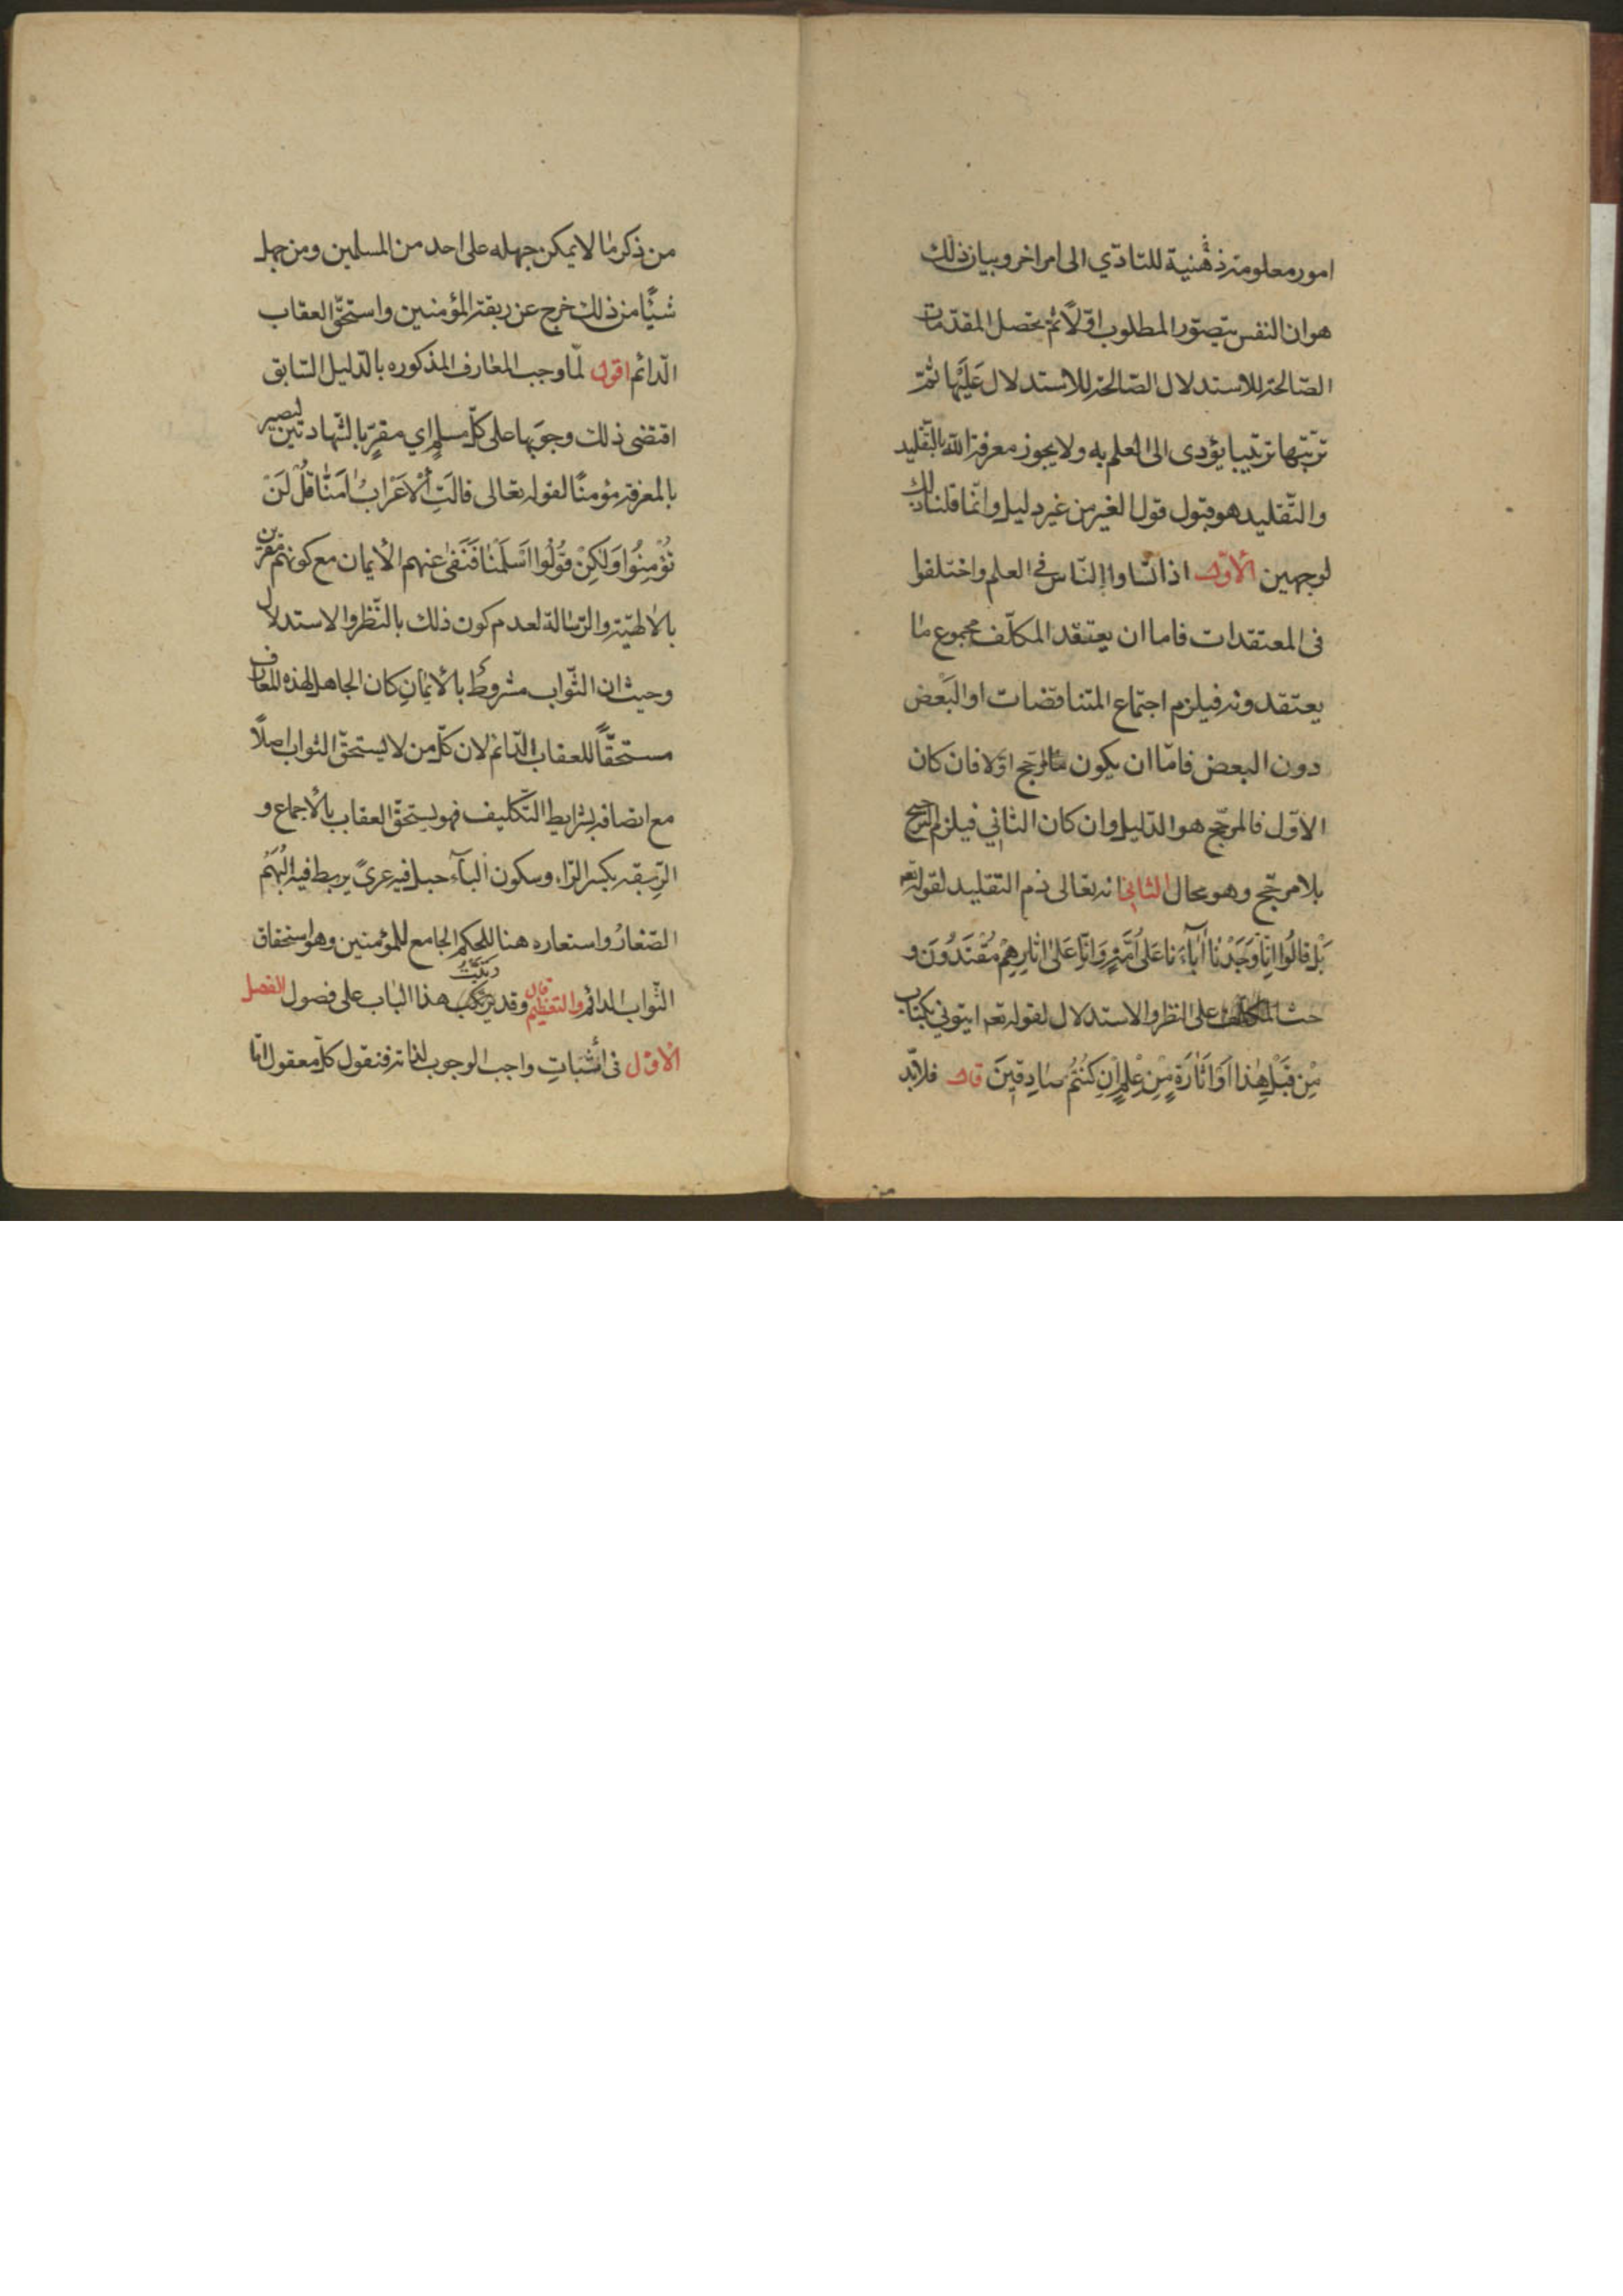 امور معلومة ذهنية للتادّي الى امر اخر وبيان ذلك
هو ان النفس يتصوّر المطلوب اوّلًا ثم تحصل المقدّمات
الصّالحة للاستدلال الصّالحة للاستدلال عَلَيْها ثمّ
ترتّبها ترتيبا يؤدى الى العلم به ولا يجوز معرفة الله بالتّقليد
والتّقليد هو قبول قول الغير من غير دليل وانّما قلنا ذلك
لوجهين الأوّل اذا تساوا النّاس في العلم واختلفوا
فى المعتقدات فاما ان يعتقد المكلّف مجموع ما
يعتقدونه فيلزم اجتماع المتناقضات او البَعض
دون البعض فامّا ان يكون مّا لمرجّح اوّلا فان كان
الاوّل فالمرجّح هو الدّليل وان كان الثّاني فيلزم الترجيح
بلا مرجّح وهو محال الثاني انه تعالى ذم التقليد لقوله تعه
بَلْ قالُوا انِّا وَجَدْنا اٰبآءَنا عَلىٰ اُمَّةٍ وَاِنّا عَلىٰ اثارِهِمْ مُقْتَدُونَ و
حثّ على النظر والاستدلال لقوله تعه ايتوني بكتاب
مِنْ قَبْلِ هٰذا اَوْ اَثارَةٍ مِنْ عِلْمٍ اِنْ كُنْتُمْ صادِقينَ قال فلابّد
من
من ذكر ما لا يمكن جهله على احد من المسلمين ومن جهل
شيئًا من ذلك خرج عن ربقة المؤمنين واستحقّ العقاب
الدّائم اقول لمّا وجب المعارف المذكوره بالدّليل السّابق
اقتضى ذلك وجوبها على كلّ مسلمٍ اي مقرٍّ بالشّهادتين ليصير
بالمعرفة مؤمنًا لقوله تعالى قالَتِ الْاَعْرابُ اٰمَنّا قُلْ لَنْ
تُؤْمِنُوا وَلٰكِنْ قُولُوا اَسْلَمْنا فَنَفىٰ عنهم الأيمان مع كونهم مقرّين
بالالهيّة والرّسالة لعدم كون ذلك بالنّظر والاستدلال
وحيث ان الثّواب مشروطٌ بالأيمانِ كان الجاهل لهذه المعارف
مستحقًّا للعقاب الدّائم لان كلّ من لا يستحقّ الثواب اصلًا
مع اتصافه بشرايط التّكليف فهو يستحقّ العقاب بالأجماع و
الرّبقة بكسر الرّاء وسكون البآء حبل فيه عرىً يربط فيه البُهَمُ
الصّغارُ واستعاره هنا للحكم الجامع للمؤمنين وهو استحقاق
الثّواب الدائم والتعظيم قال وقد رتّبتُ هذا الباب على فصول الفصل
الاوّل فى أثباتِ واجب الوجوب لذاته فنقول كلّ معقول امّا